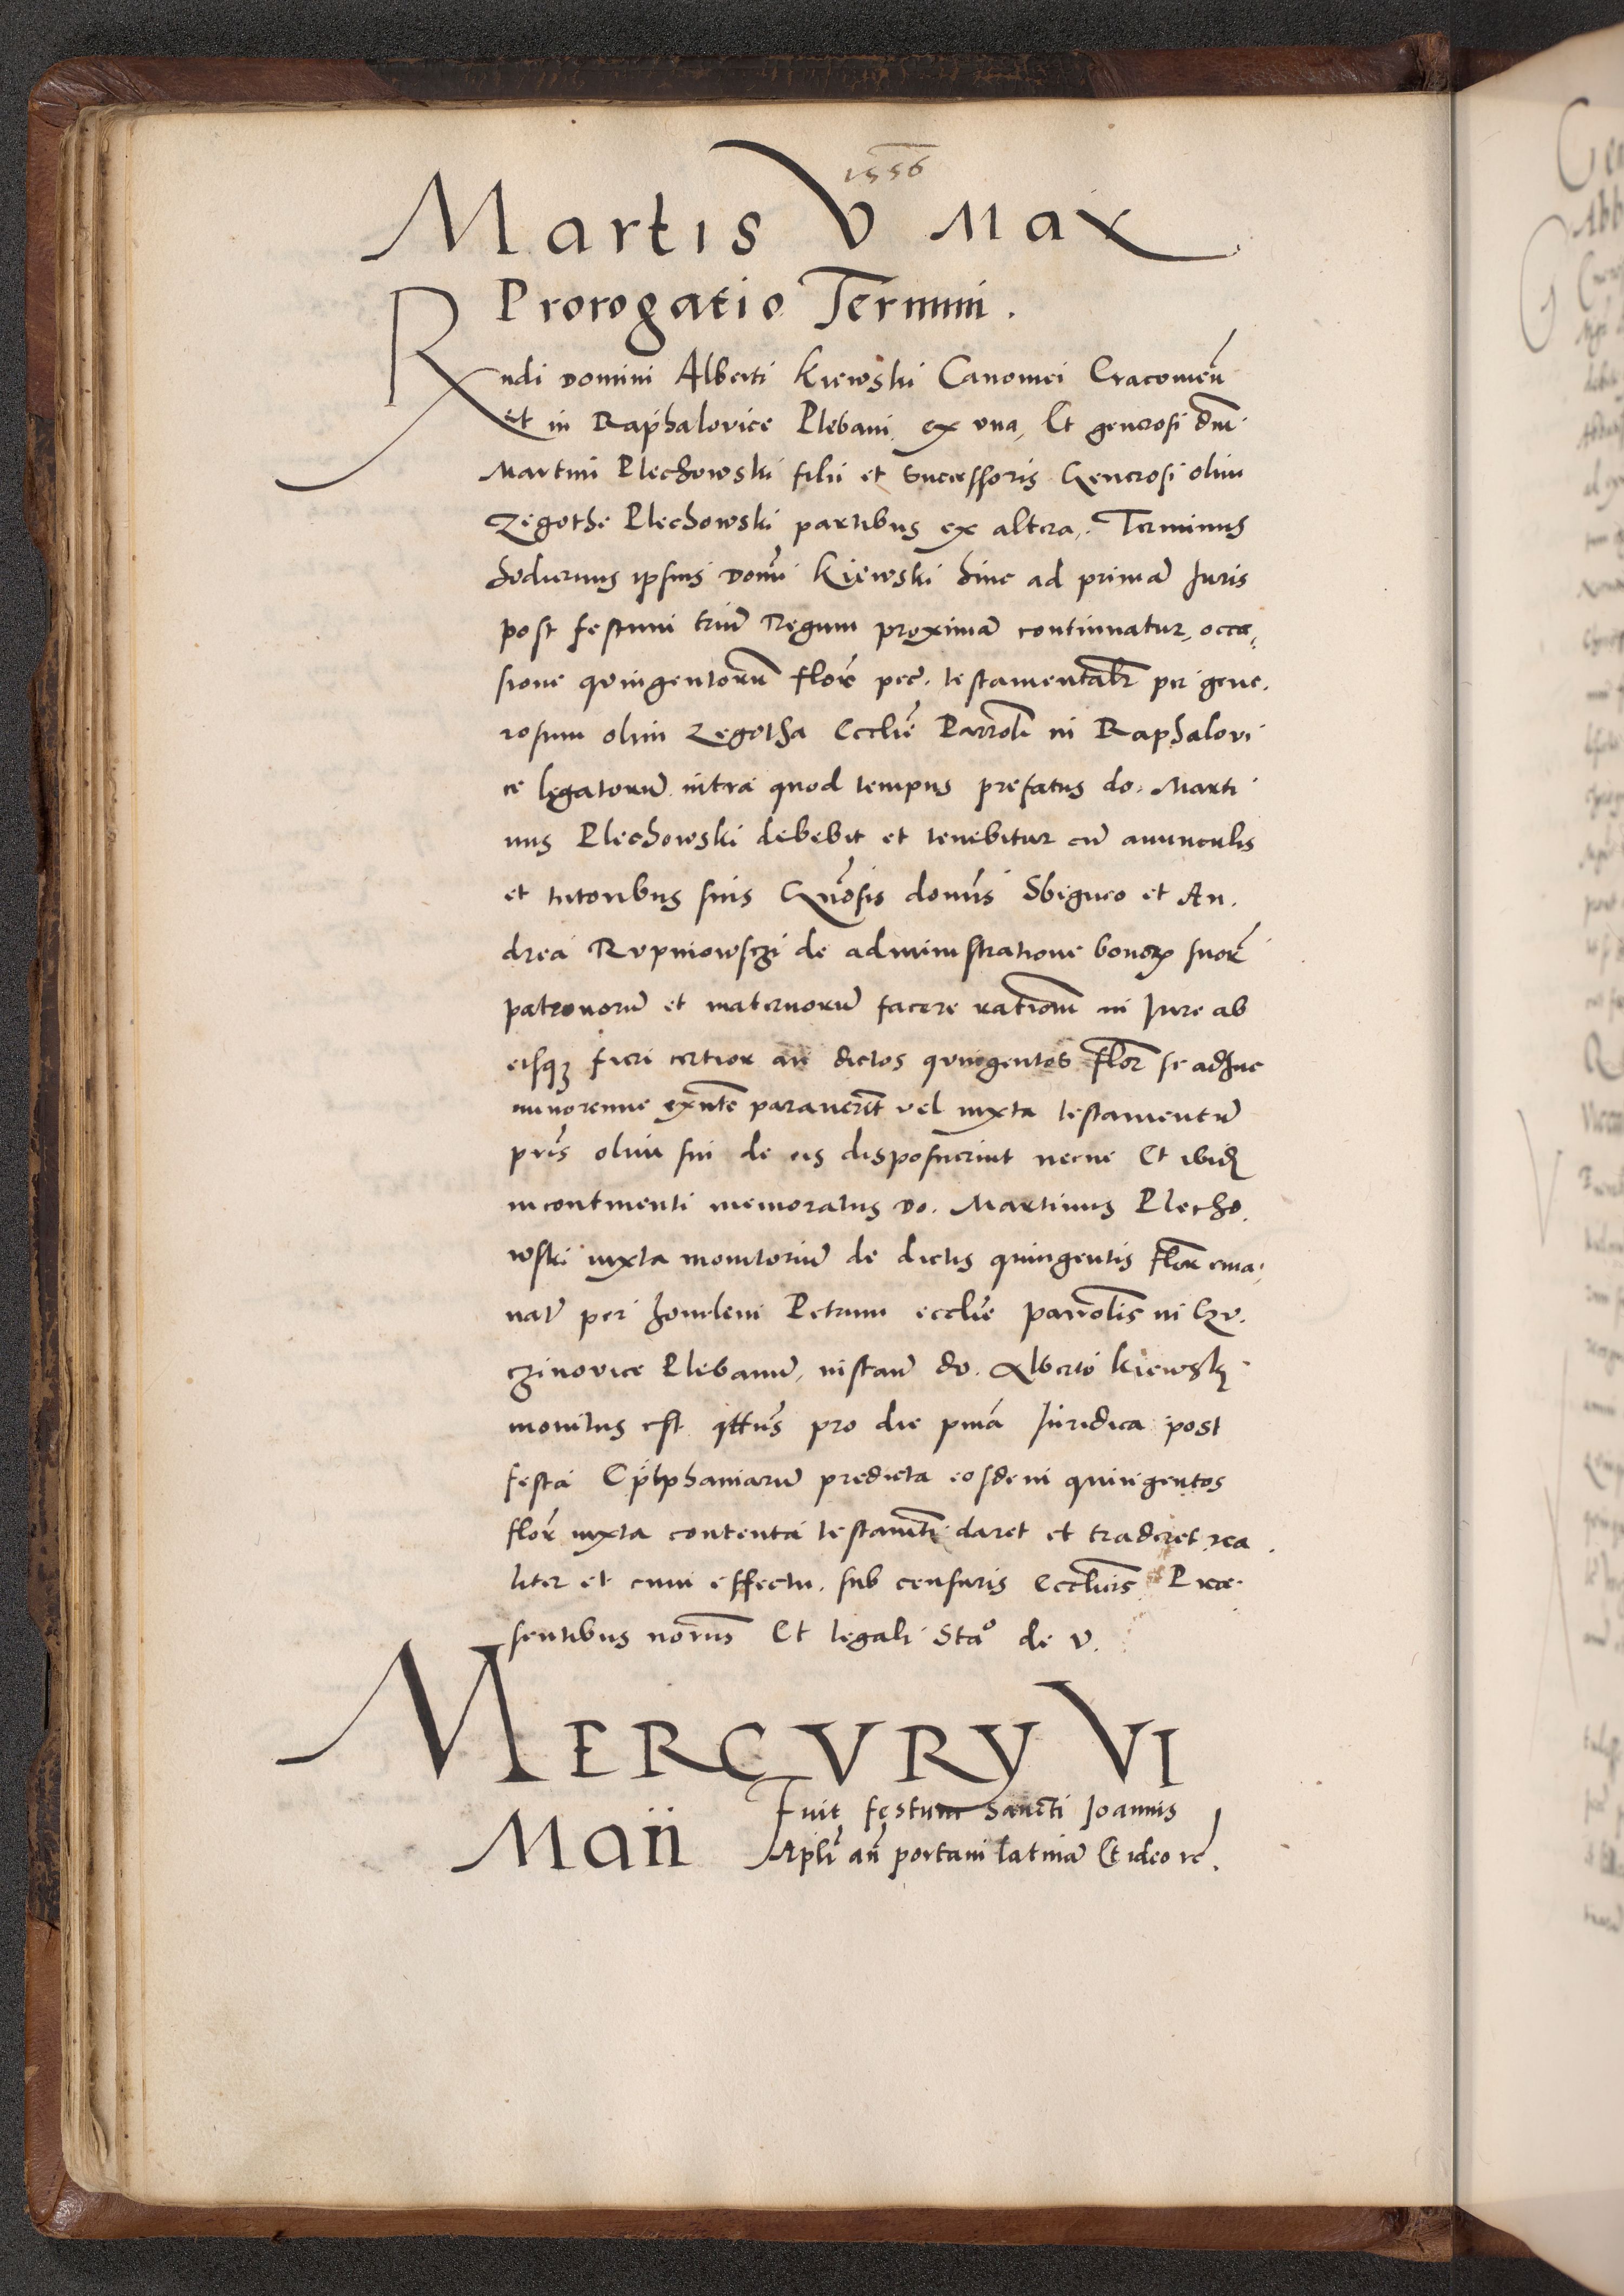 1556
Martis V Maii
Prorogatio Termini.
Rndi domini Alberti Kiewski Canonici Cracouień
et in Raphalovice Plebani ex vna, Et generosi dni
Martini Plechowski filii et Successoris Generosi olim
Zegothe Plechowski partibus ex altera. Terminus
hodiernus ipsius domi Kiewski hinc ad primā Iuris
post festum triū Regum proximā continuatur, occa
sione quingentorū flor pec. testamentalr per gene.
rosum olim Zegotha Ecclie Parroli in Raphalovi
ce legatorū intra quod tempus prefatus do. Marti
nus Plechowski debebit et tenebitur cū auunculis
et tutoribus suis Gnosis domis Sbigneo et An.
drea Rvpniowsczi de administratione bonorꝝ suor
paternorū et maternorū facere rationē in Iure ab
eisqꝫ fieri certior an dictos quingentos flor se adhuc
minorenne exnte parauerint vel iuxta testamentū
pris olim sui de eis disposuerint necne Et ibidē
incontinenti memoratus do. Martinus Plecho.
wski iuxta monitoriū de dictis quingentis flor ema.
nat per hondem Petrum ecclie parrolis in Gv.
czinovice Plebanū, instan do. Alberto Kiewsky
monitus est qttus pro die pma Iuridica post
festa Epiphaniarū predicta eosdem quingentos
flor iuxta contenta testamti daret et traderet rea
liter et cum effectu. sub censuris Ecclicis Prae.
sentibus norus Et legali Stao de V.
MERCVRY VI
Maii
Fuit festum Sancti Joannis
Apli an portam latinā Et ideo re.